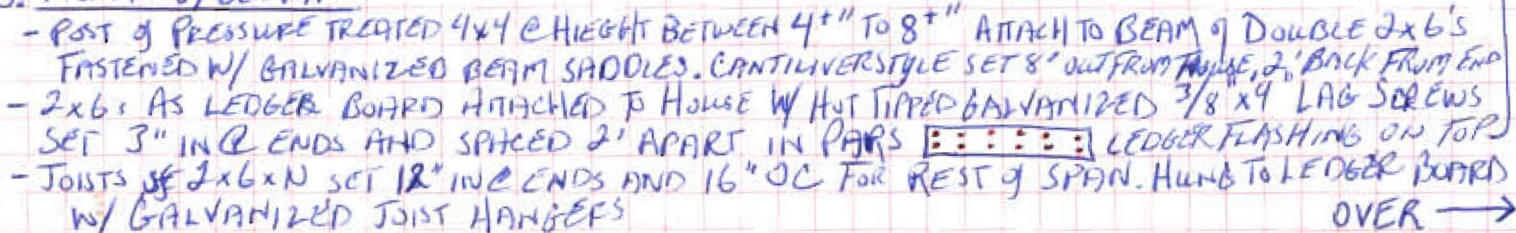 - POST of PRESSURE TREATED 4x4 @ HIEGHT BETWEEN 4+" TO 8+" ATTACH TO BEAM of DOUBLE 2x6's
FASTENED W/ GALVANIZED BEAM SADDLES. CANTILIVER STYLE SET 8' OUT FROM HOUSE, 2' BACK FROM END
- 2x6s AS LEDGER BOARD ATTACHED TO HOUSE W/ HOT TIPPED GALVANIZED 3/8"x4 LAG SCREWS
SET 3" IN @ ENDS AND SPACED 2' APART IN PARS LEDGER FLASHING ON TOP
- JOISTS 2x6xN SET 12" IN @ ENDS AND 16" OC FOR REST of SPAN. HUNG TO LEDGER BOARD
W/ GALVANIZED JOIST HANGERS
OVER →